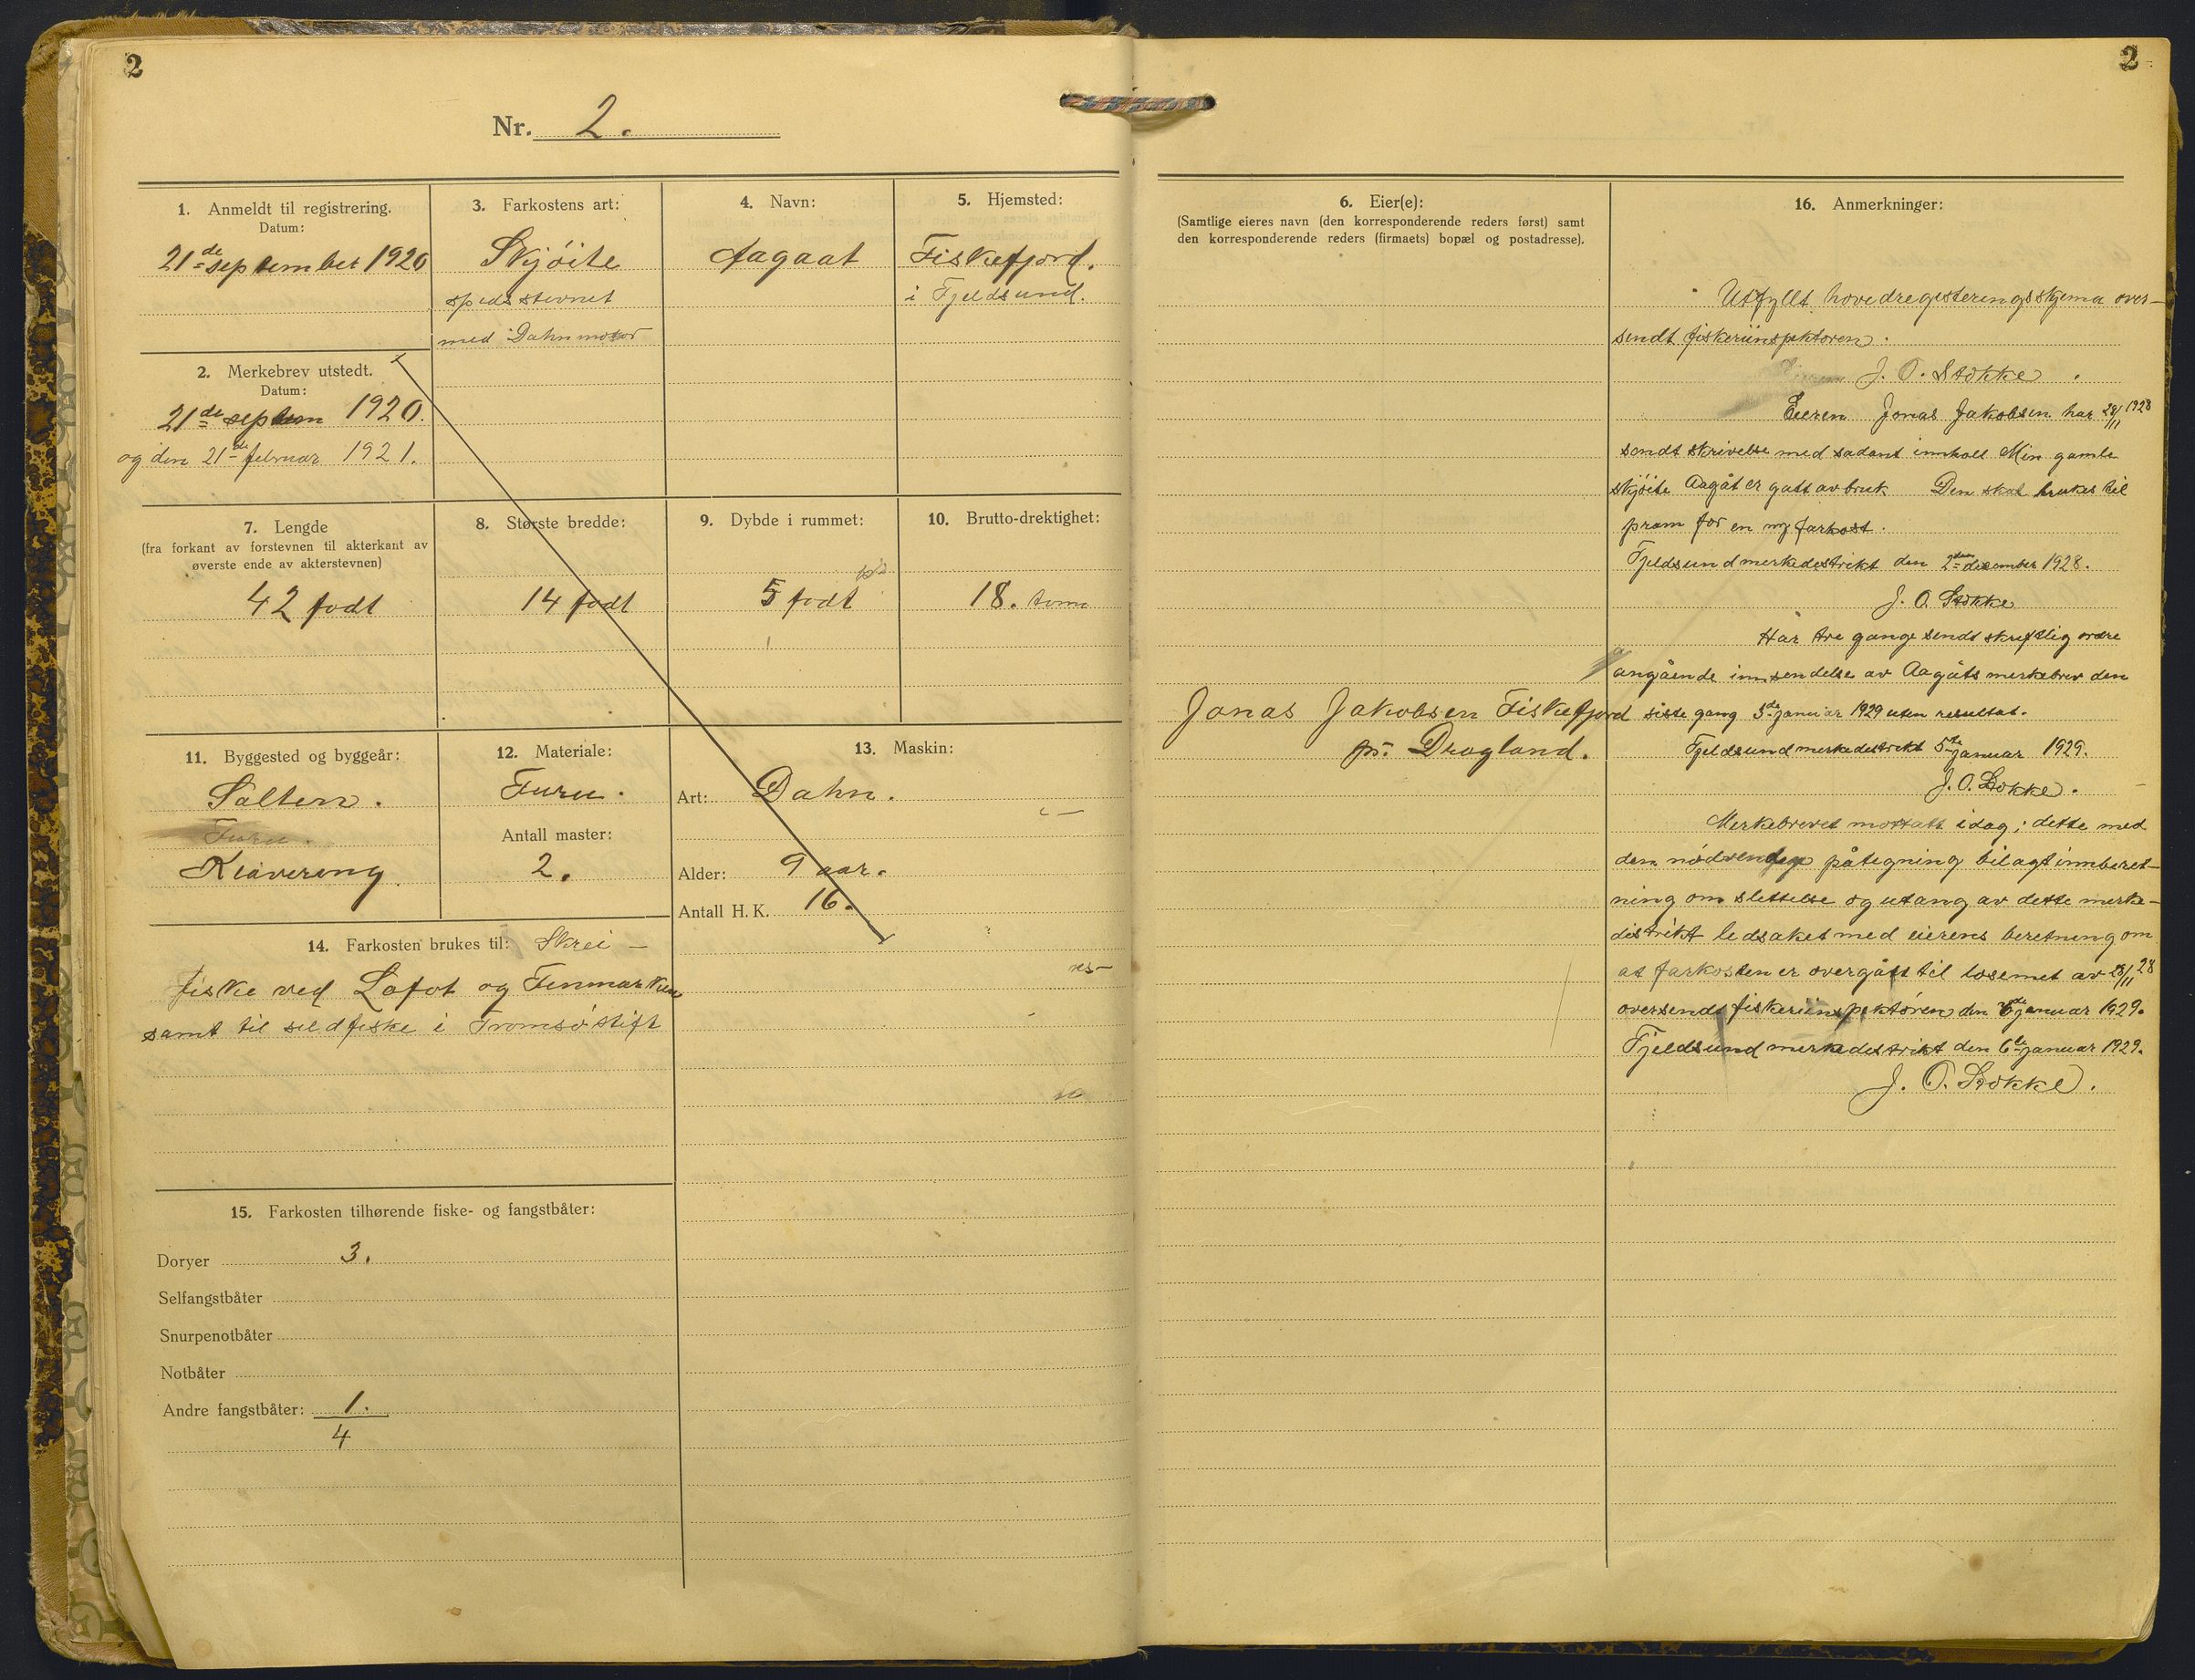 2
Nr. 2.
1. Anmeldt til registrering.
Datum:
21de september 1920
2. Merkebrev utstedt.
Datum:
21de septem 1920.
og den 21de februar 1921.
3. Farkostens art:
Skjöite
spidsstevnet
med Dahnmotor
4. Navn:
Aagaat
5. Hjemsted:
Fiskefjord.
i Fjeldsund.
7. Lengde
(fra forkant av forstevnen til akterkant av
øverste ende av akterstevnen)
42 fodt
8. Største bredde:
14 fodt
9. Dybde i rummet:
5 fodt
10. Brutto-drektighet:
18. tonn
11. Byggested og byggeår:
Salten.
Furu.
Kiavereng
12. Materiale:
Furu.
Antall master:
2.
13. Maskin:
Art: Dahn.
Alder: 9 aar.
Antall H. K. 16.
14. Farkosten brukes til: Skrei-
fiske ved Lofot og Finmarken
samt til sildfiske i Tromsöstift
15. Farkosten tilhørende fiske- og fangstbåter:
Doryer 3.
Selfangstbåter
Snurpenotbåter
Notbåter
Andre fangstbåter: 1.
4
2
6. Eier(e):
(Samtlige eieres navn (den korresponderende reders først) samt
den korresponderende reders (firmaets) bopæl og postadresse).
Jonas Jakobsen Fiskefjord
pr. Dragland.
16. Anmerkninger:
Utfyllt hovedregisteringsskjema over-
sendt fiskeriinspektoren.
J. O. Stokke.
Eieren Jonas Jakobsen har 28/11 1928
sendt skrivelse med sadant innholl Min gamle
skjöite Aagåt er gatt av bruk Den skal brukes til
pram for en ny farkost.
Fjeldsund merkedistrikt den 2den desember 1928.
J. O. Stokke
Har tre gange sendt skriftlig ordre
angående innsendelse av Aagåts merkebrev den
siste gang 5de januar 1929 uten resultat.
Fjeldsund merkedistrikt 5te januar 1929.
J. O. Stokke.
Merkebrevet mottatt idag; dette med
den nödvendige påtegning bilagt innberet-
ning om slettelse og utgang av dette merke-
distrikt ledsaket med eierens beretning om
at farkosten er overgått til losemet av 28/11 28
oversendt fiskeriinspektören den 6de januar 1929.
Fjeldsund merkedistrikt den 6te januar 1929.
J. O. Stokke.